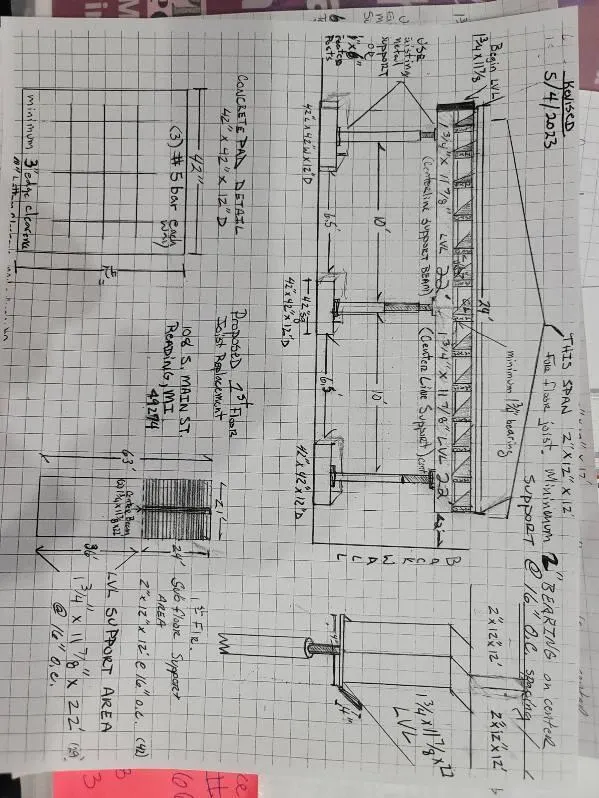 REVISED
5/4/2023
THIS SPAN 2"X12"X12'
For floor joist. Minimum 2" BEARING on center
support @ 16" O.C. spacing
Begin LVL
1 3/4 X 11 7/8
24'
minimum 1 3/4" bearing
1 3/4" X 11 7/8" LVL 22'
(Centerline Support BEAM)
1 3/4" X 11 7/8" LVL 22'
(Center Line Support) cont
USE
Existing
metal
support
OR
6"x6"
treated
Posts
10'
10'
6.5'
6.5'
42"L x 42"W x 12"D
42" SQ
42"x42"x12"D
42"x42"x12"D
BACK WALL
2"x12"x12'
2"x12"x12'
1 3/4 x 11 7/8 x 22
LVL
4"
CONCRETE PAD DETAIL
42" x 42" x 12" D
42"
(3) # 5 bar each
way
minimum 3" edge clearance
Proposed 1st Floor
Joist Replacement
108 S. MAIN ST.
READING, MI
49274
21'
63'
24'
36'
Center Beam
1st Flr.
Sub floor Support
AREA
2"x12"x12' @ 16" o.c. (42)
LVL SUPPORT AREA
1 3/4" x 11 7/8 x 22'
@ 16" o.c.